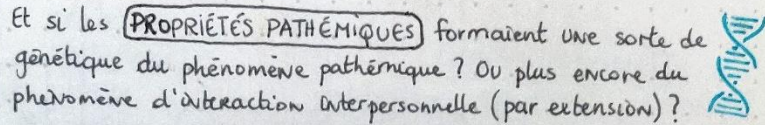 Et si les PROPRIÉTÉS PATHÉMIQUES formaient une sorte de
génétique du phénomène pathémique ? Ou plus encore du
phénomène d'interaction interpersonnelle (par extension) ?